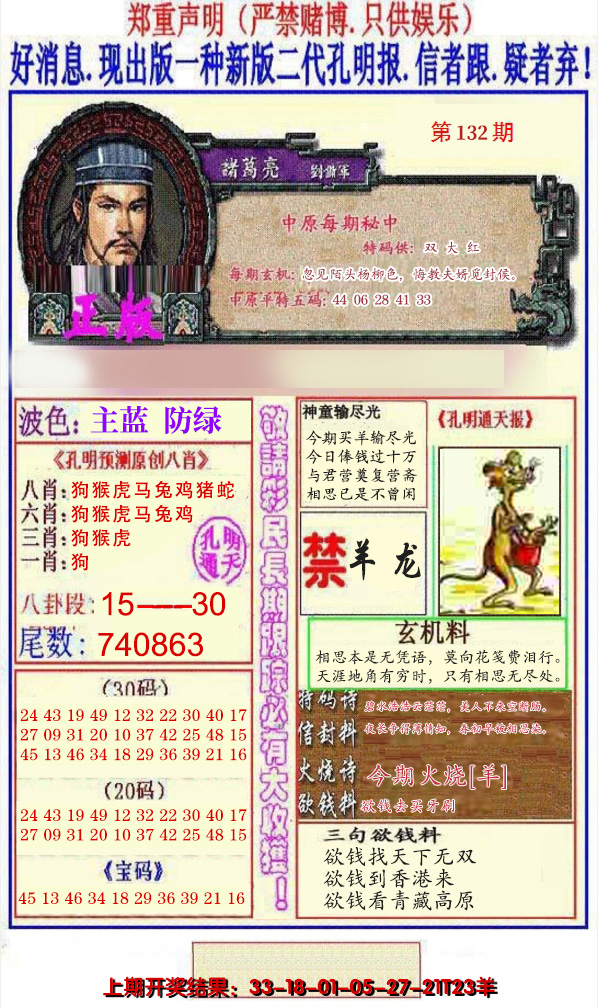 郑重声明（严禁赌博.只供娱乐）
好消息.现出版一种新版二代孔明报.信者跟.疑者弃！
第132期
諸葛亮 劉備軍
中原每期秘中
特码供：双大红
每期玄机：忽见陌头杨柳色，悔教夫婿觅封侯。
中原平特五码：44 06 28 41 33
正版
波色：主蓝 防绿
《孔明预测原创八肖》
八肖：狗猴虎马兔鸡猪蛇
六肖：狗猴虎马兔鸡
三肖：狗猴虎
一肖：狗
孔明
通天
八卦段：15---30
尾数：740863
（30码）
24 43 19 49 12 32 22 30 40 17
27 09 31 20 10 37 42 25 48 15
45 13 46 34 18 29 36 39 21 16
（20码）
24 43 19 49 12 32 22 30 40 17
27 09 31 20 10 37 42 25 48 15
《宝码》
45 13 46 34 18 29 36 39 21 16
敬請彩民長期跟踪必有大收獲！
神童输尽光
今期买羊输尽光
今日俸钱过十万
与君营奠复营斋
相思已是不曾闲
《孔明通天报》
禁 羊 龙
玄机料
相思本是无凭语，莫向花笺费泪行。
天涯地角有穷时，只有相思无尽处。
特码诗 碧水浩浩云茫茫，美人不来空断肠。
信封料 夜长争得薄情知，春初早被相思染。
火烧诗 今期火烧[羊]
欲钱料 欲钱去买牙刷
三句欲钱料
欲钱找天下无双
欲钱到香港来
欲钱看青藏高原
上期开奖结果：33-18-01-05-27-21T23羊